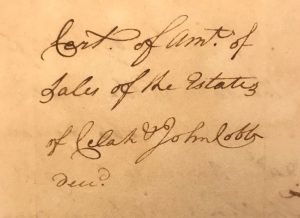 Cert. of Amt. of
Sales of the Estates
of Celah & John Cobb
decd